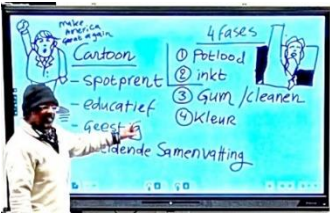 make
America
great again
Cartoon
- spotprent
- educatief
- Geestig
Samenvatting
4 fases
① Potlood
② inkt
③ Gum / cleanen
④ Kleur